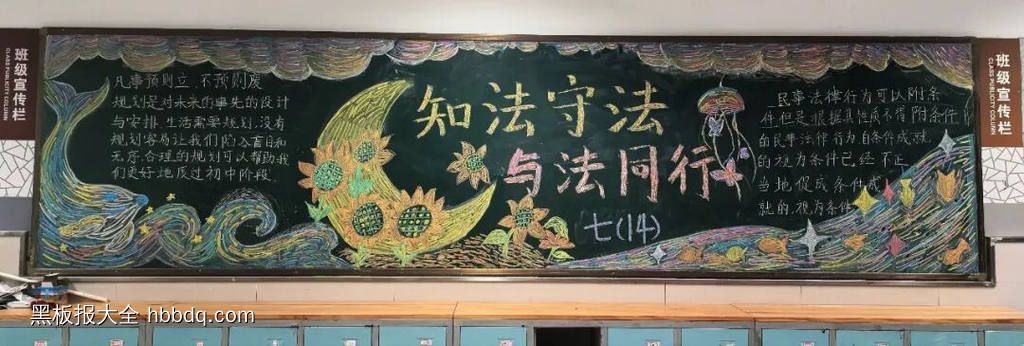 班级宣传栏
CLASS PUBLICITY COLUMN
凡事预则立 不预则废
规划是对未来的事先的设计
与安排,生活需要规划,没有
规划容易让我们陷入盲目和
无序,合理的规划可以帮助我
们更好地度过初中阶段
知法守法
与法同行
七(14)
民事法律行为可以附条
件但是,根据其性质不得附条件
的民事法律行为自条件成就
的视为条件已经不正
当地促成条件成
就的,视为条件
班级宣传栏
CLASS PUBLICITY COLUMN
黑板报大全 hbbdq.com